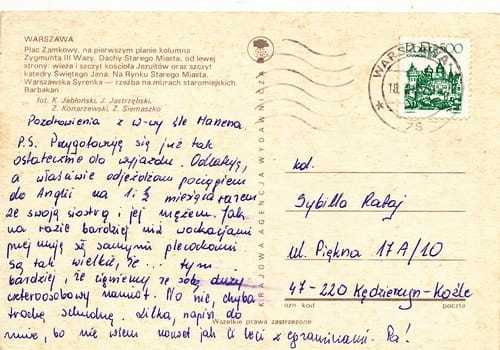 WARSZAWA
Plac Zamkowy, na pierwszym planie kolumna
Zygmunta III Wazy. Dachy Starego Miasta; od lewej
strony: wieża i szczyt kościoła Jezuitów oraz szczyt
katedry Świętego Jana. Na Rynku Starego Miasta.
Warszawska Syrenka — rzeźba na murach staromiejskich.
Barbakan
fot. K. Jabłoński, J. Jastrzębski,
Z. Konarzewski, Z. Siemaszko
Pozdrowienia z W-wy śle
P.S. Przygotowuję się już tak
ostatecznie do wyjazdu. Odlatuję,
a właściwie odjeżdżam pociągiem
do Anglii na 1½ miesiąca razem
ze swoją siostrą i jej mężem. Jak
na razie bardziej niż wakacjami
przejmuję się samymi plecakami
są tak wielkie, że ... tym
bardziej, że ciągniemy ze sobą duży
czteroosobowy namiot. No nie, chyba
trochę schudnę. Lilka, napisz do
mnie, bo nie wiem nawet jak Ci leci z egzaminami. Pa!
KRAJOWA AGENCJA WYDAWNICZA
WARSZAWA
18
75
POLSKA 500
kol.
Sybilla Rataj
ul. Piękna 17A/10
47-220 Kędzierzyn-Koźle
ozn kod
poczta
Wszelkie prawa zastrzeżone